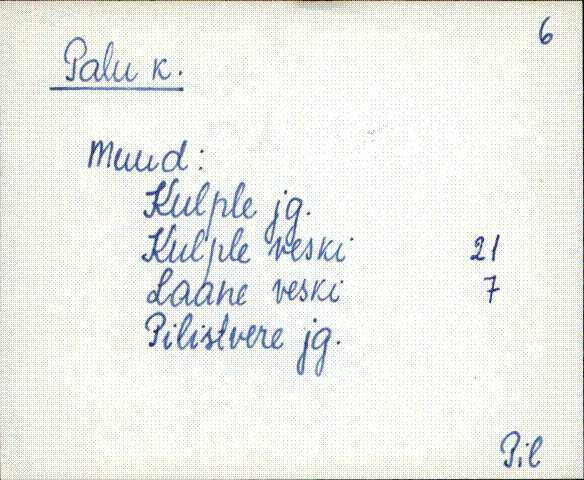 6
Palu k.
Muud:
Kulple jg.
Kulple veski 21
Laane veski 7
Pilistvere jg.
Pil